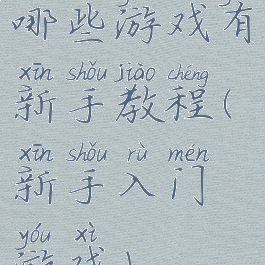 哪些游戏有
xīn shǒu jiào chéng
新手教程(
xīn shǒu rù mén
新手入门
yóu xì
游戏)